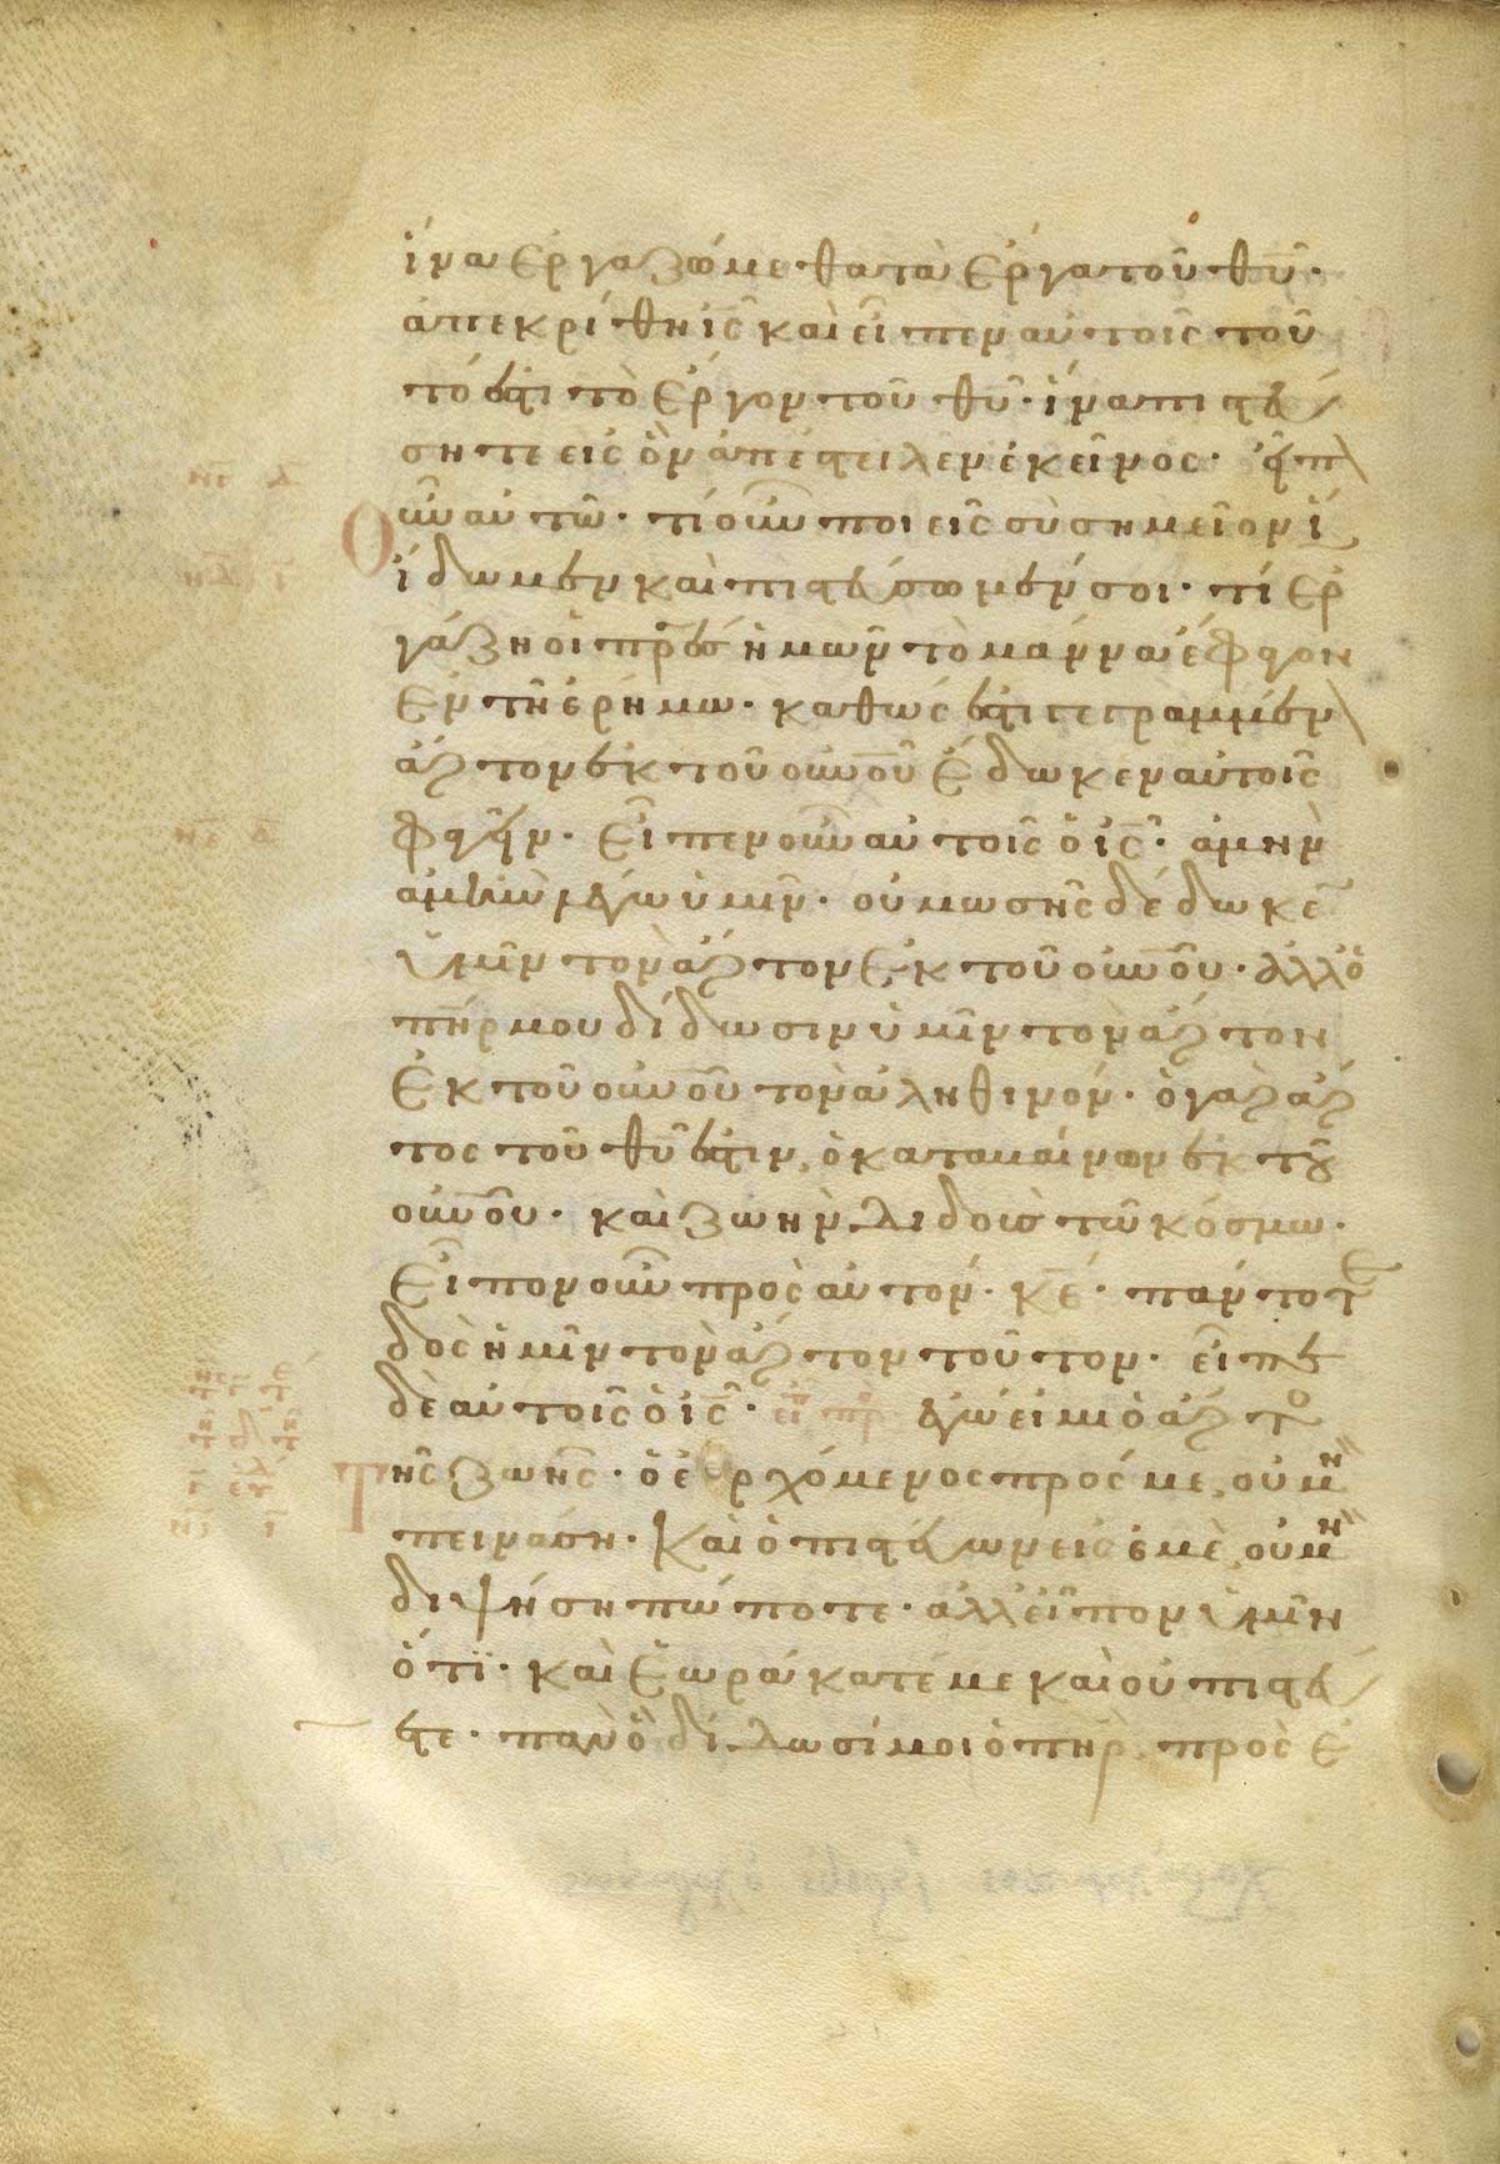 ἵνα ἐργαζώμεθα τὰ ἔργα τοῦ θῦ·
ἀπεκρίθη ἰς̄ καὶ εἶπεν αὐτοῖς τοῦ
τό ἐστι τὸ ἔργον τοῦ θῦ· ἵνα πιστεύ
σητε εἰς ὃν ἀπέστειλεν ἐκεῖνος· εἶπ
οῦν αὐτῶ· τί οῦν ποιεῖς σὺ σημεῖον ἵ
ἴδωμεν καὶ πιστεύσωμέν σοι· τί ἐρ
γάζη οἱ πρ̄ες ἡμῶν τὸ μάννα ἔφαγον
ἐν τῆ ἐρήμω· καθώς ἐστι γεγραμμέν
ἄρτον ἐκ τοῦ οὐνοῦ ἔδωκεν αὐτοῖς
φαγεῖν· εἶπεν οῦν αὐτοῖς ὁ ἰς̄· ἀμὴν
ἀμὴν λέγω ὑμῖν· οὐ μωσῆς δέδωκε̄
ὑμῖν τὸν ἄρτον ἐκ τοῦ οὐνοῦ· ἀλλ ὁ
πη̄ρ μου δίδωσιν ὑμῖν τὸν ἄρτον
ἐκ τοῦ οὐνοῦ τὸν ἀληθινόν· ὁ γὰρ ἄρ
τος τοῦ θῦ ἐστιν, ὁ καταβαίνων ἐκ τοῦ
οὐνοῦ· καὶ ζωὴν διδοὺς τῶ κόσμω·
εἶπον οῦν πρὸς αὐτόν· κ̄ε· πάντοτε
δὸς ἡμῖν τὸν ἄρτον τοῦτον· εἶπε
δὲ αὐτοῖς ὁ ἰς̄· ἐγώ εἰμι ὁ ἄρτο
τῆς ζωῆς· ὁ ἐρχόμενος πρός με, οὐ μὴ
πεινάση· καὶ ὁ πιστεύων εἰς ἐμὲ, οὐ μὴ
διψήση πώποτε· ἀλλ εἶπον ὑμῖν
ὅτι· καὶ ἑωράκατέ με καὶ οὐ πιστεύ
ετε· πᾶν ὃ δίδωσί μοι ὁ πη̄ρ, πρὸς ἐ